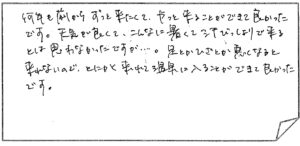 何年も前から ずっと来たくて、やっと来ることができて良かった
です。天気が良くて、こんなに暑くて汗びっしょりで来る
とは思わなかったですが…。足とかひざとかが悪くなると
来れないので、とにかく来れて温泉に入ることができて良かった
です。